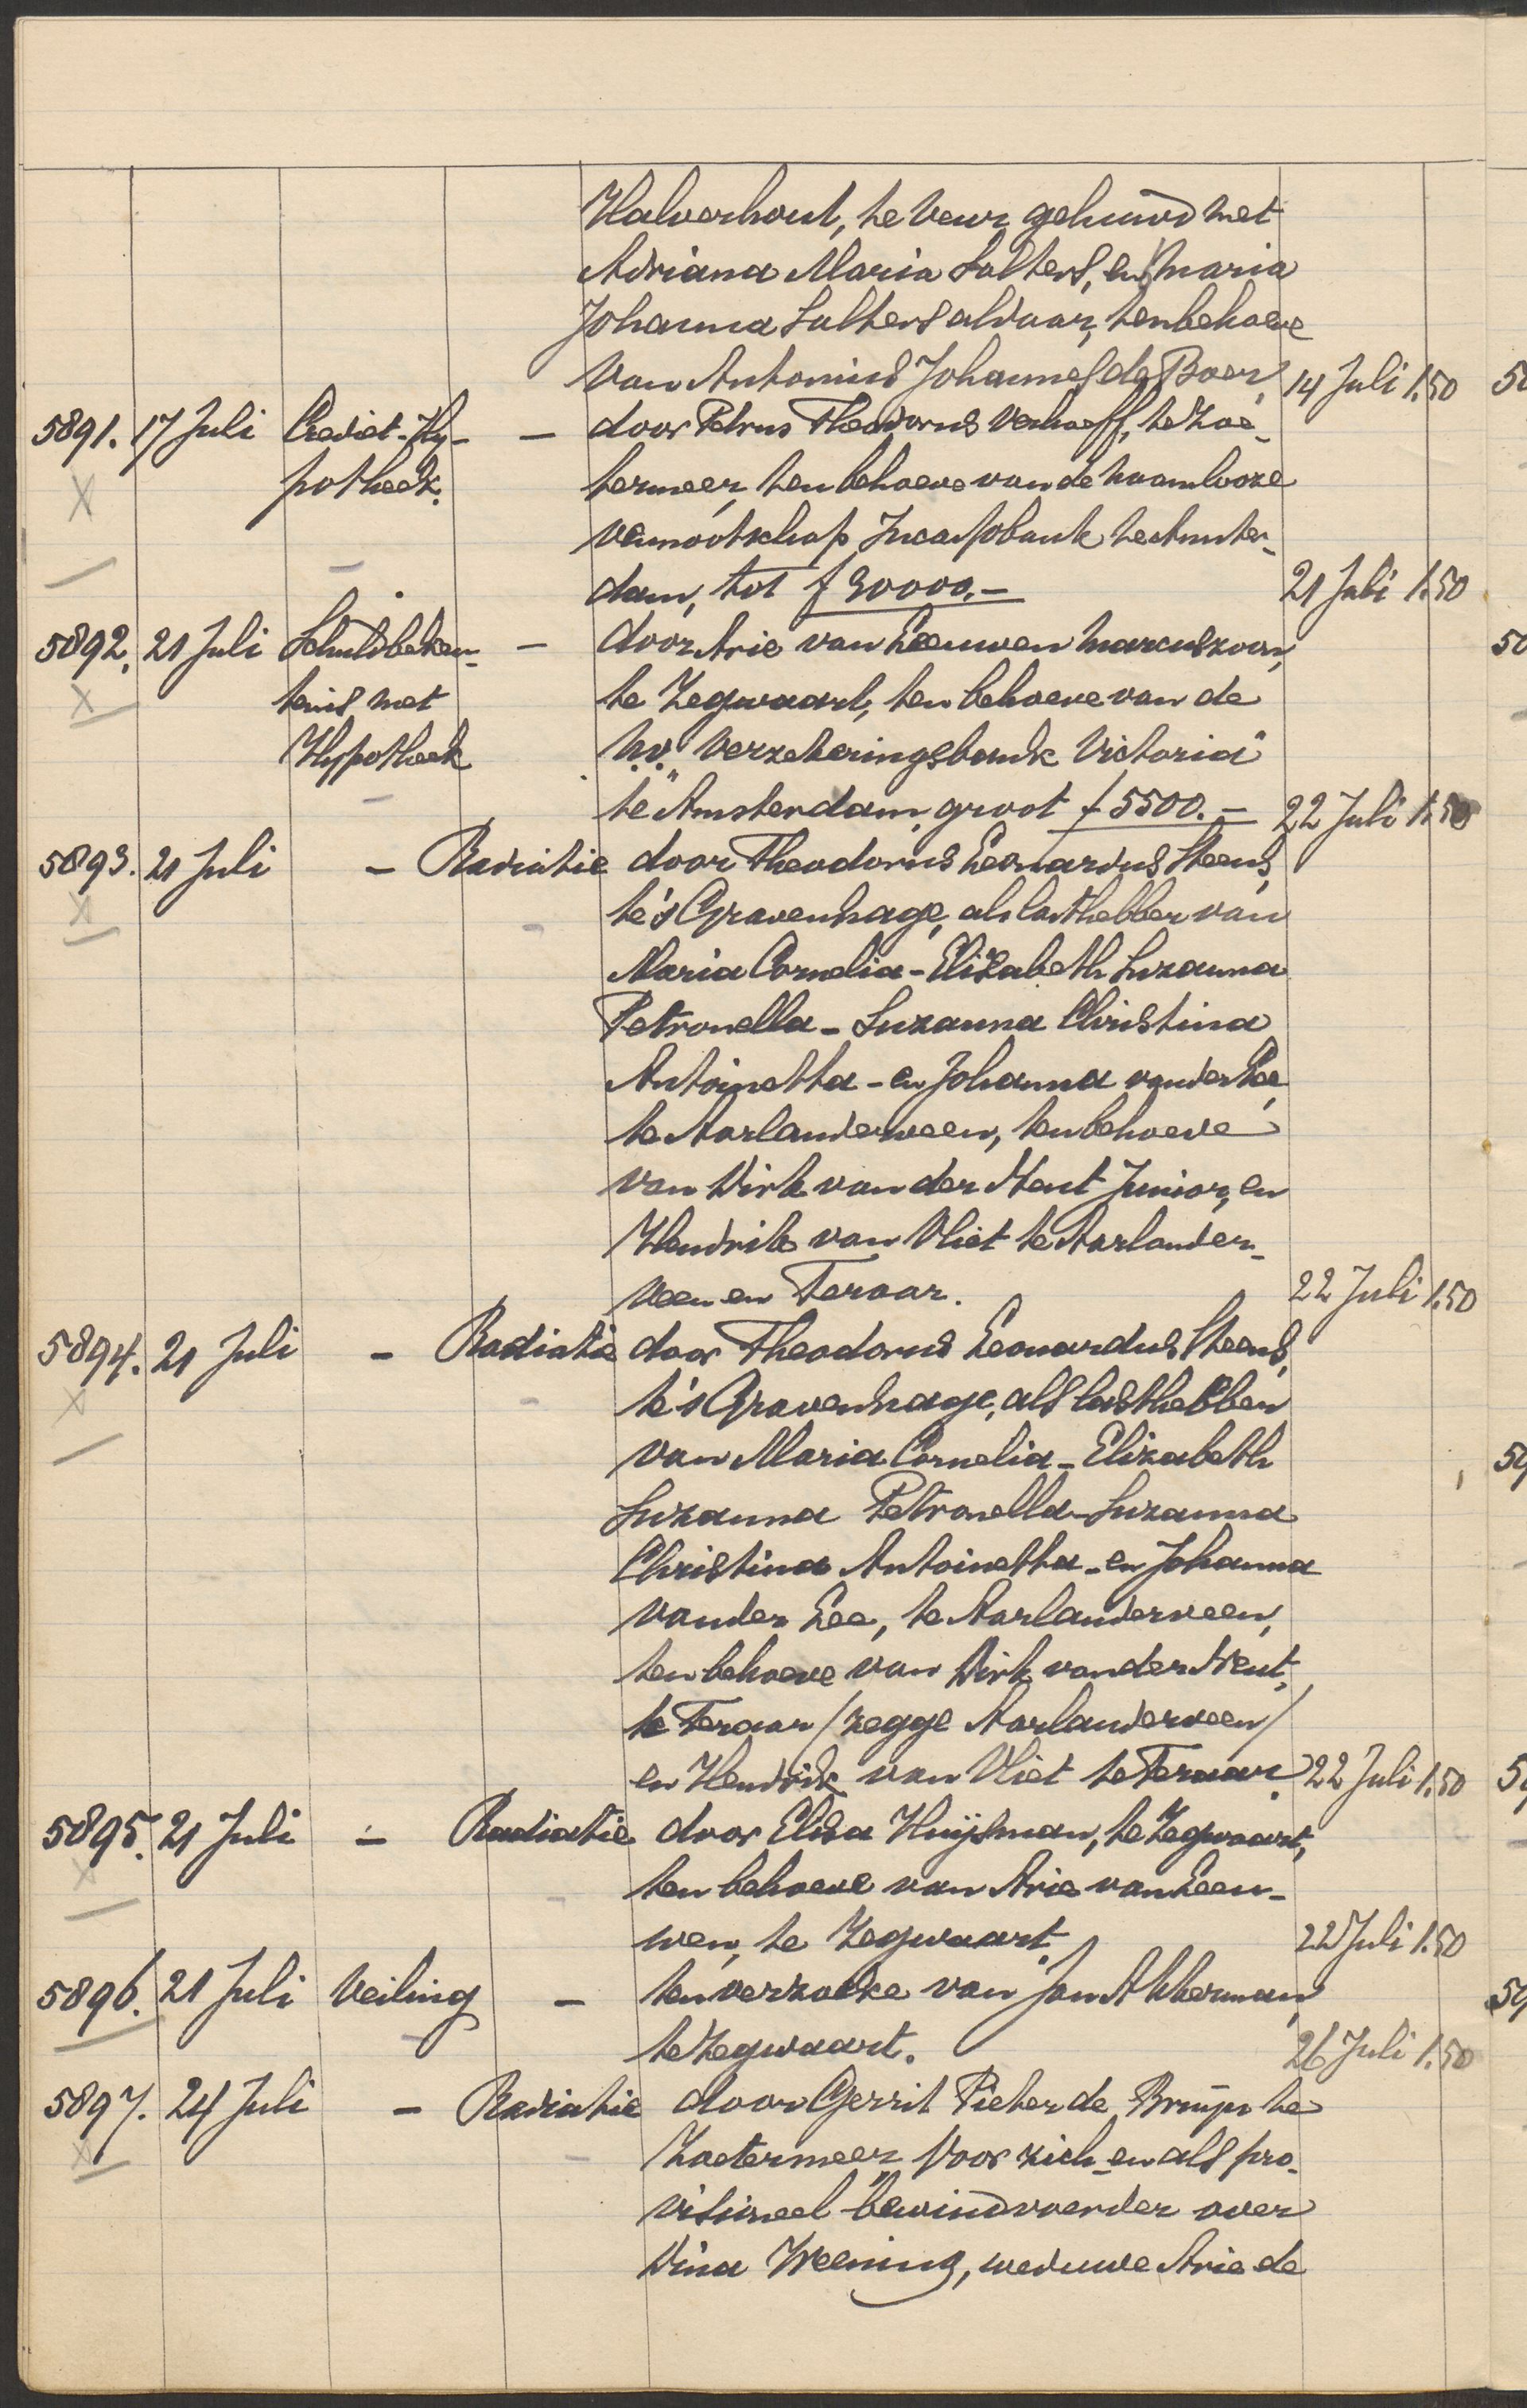 Halverhout, te Veur gehuwd met
Adriana Maria Luthers, en Maria
Johanna Luthers aldaar, ten behoeve
van Antonius Johannes de Boer, 14 Juli 1.50
5891. 17 Juli Crediet-Hy- — door Petrus Theodorus Verhoeff, te Zoe-
potheek. termeer, ten behoeve van de naamlooze
vennootschap Incassobank te Amster-
dam, tot f 30000.— 21 Juli 1.50
5892. 21 Juli Schuldbeken- — door Arie van Leeuwen Marcuszoon,
tenis met te Zegwaart, ten behoeve van de
Hypotheek n.v. Verzekeringsbank Victoria"
te "Amsterdam, groot f 5500.— 22 Juli 1.50
5893. 21 Juli — Radiatie door Theodorus Leonardus Steens,
te 's Gravenhage, als lasthebber van
Maria Cornelia - Elizabeth Suzanna
Petronella - Suzanna Christina
Antoinetta - en Johanna van der Lee,
te Aarlanderveen, ten behoeve
van Dirk van der Ment Junior, en
Hendrik van Vliet te Aarlander-
veen en Teraar. 22 Juli 1.50
5894. 21 Juli — Radiatie door Theodorus Leonardus Steens,
te 's Gravenhage, als lasthebber
van Maria Cornelia - Elizabeth
Suzanna Petronella - Suzanna
Christina Antoinetta - en Johanna
van der Lee, te Aarlanderveen,
ten behoeve van Dirk van der Ment,
te Teraar /zegge Aarlanderveen/
en Hendrik van Vliet te Teraar. 22 Juli 1.50
5895. 21 Juli — Radiatie door Elisa Huijsman, te Zegwaart,
ten behoeve van Arie van Leeu-
wen, te Zegwaart. 22 Juli 1.50
5896. 21 Juli Veiling — ten verzoeke van Jan Akkerman,
te Zegwaart. 26 Juli 1.50
5897. 24 Juli — Radiatie door Gerrit Pieter de Bruijn te
Zoetermeer, voor zich - en als pro-
visioneel bewindvoerder over
Dina Weening, weduwe Arie de